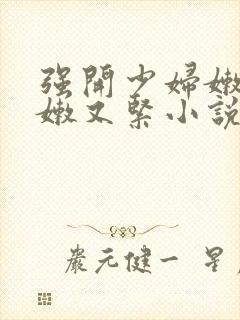 强開少婦嫩
嫩又緊小說
嚴元健一 星